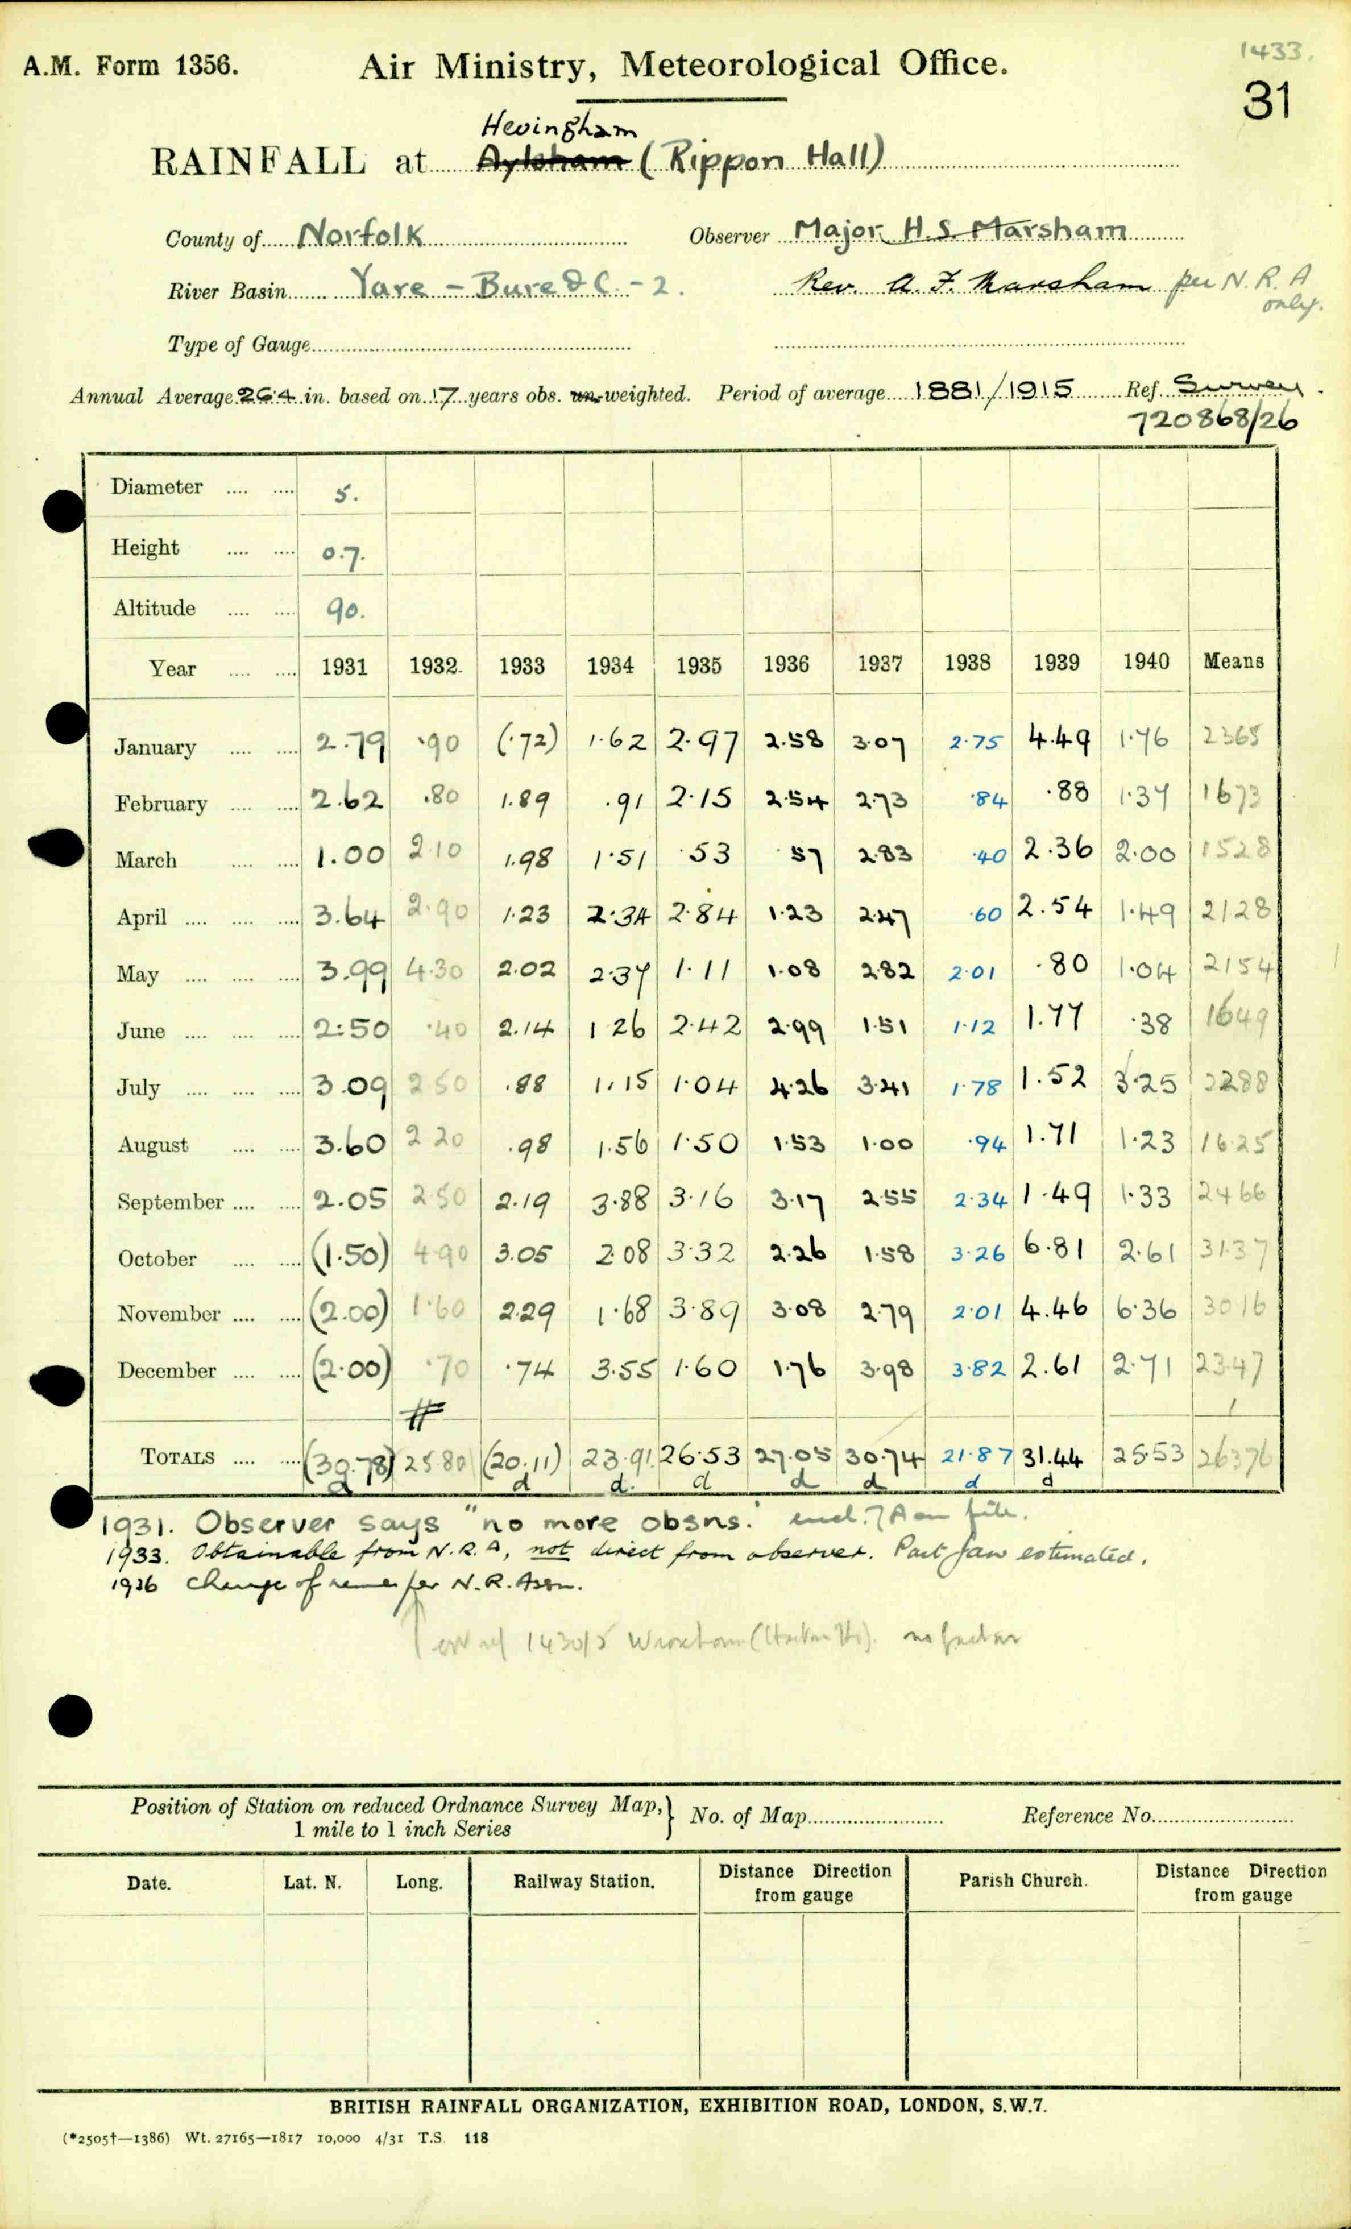 1433.
A.M. Form 1356. Air Ministry, Meteorological Office. 31
Hevingham
RAINFALL at Aylsham (Rippon Hall)
County of Norfolk Observer Major H.S. Marsham
River Basin Yare - Bure & C. - 2. Rev. A. F. Marsham per N.R.A only.
Type of Gauge
Annual Average 26.4 in. based on 17 years obs. un-weighted. Period of average 1881/1915 Ref. Survey
720868/26
Diameter 5.
Height 0.7.
Altitude 90.
Year 1931 1932 1933 1934 1935 1936 1937 1938 1939 1940 Means
January 2.79 .90 (.72) 1.62 2.97 2.58 3.07 2.75 4.49 1.76 2365
February 2.62 .80 1.89 .91 2.15 2.54 2.73 .84 .88 1.37 1673
March 1.00 2.10 1.98 1.51 .53 .57 2.83 .40 2.36 2.00 1528
April 3.64 2.90 1.23 2.34 2.84 1.23 2.47 .60 2.54 1.49 2128
May 3.99 4.30 2.02 2.37 1.11 1.08 2.82 2.01 .80 1.04 2154
June 2.50 .40 2.14 1.26 2.42 2.99 1.51 1.12 1.77 .38 1649
July 3.09 2.50 .88 1.15 1.04 4.26 3.41 1.78 1.52 3.25 2288
August 3.60 2.20 .98 1.56 1.50 1.53 1.00 .94 1.71 1.23 1625
September 2.05 2.50 2.19 3.88 3.16 3.17 2.55 2.34 1.49 1.33 2466
October (1.50) 4.90 3.05 2.08 3.32 2.26 1.58 3.26 6.81 2.61 3137
November (2.00) 1.60 2.29 1.68 3.89 3.08 2.79 2.01 4.46 6.36 3016
December (2.00) .70 .74 3.55 1.60 1.76 3.98 3.82 2.61 2.71 2347
#  1
TOTALS (30.78) 25.80 (20.11) 23.91 26.53 27.05 30.74 21.87 31.44 25.53 26376
d d d. d d d d d
1931. Observer says "no more obsns." encl. 7A on file.
1933. Obtainable from N.R.A, not direct from observer. Part Jan estimated.
1936 Change of name per N.R. Assn.
1430/5 Wroxham no factor
Position of Station on reduced Ordnance Survey Map, } No. of Map Reference No.
1 mile to 1 inch Series
Date. Lat. N. Long. Railway Station. Distance Direction from gauge Parish Church. Distance Direction from gauge
BRITISH RAINFALL ORGANIZATION, EXHIBITION ROAD, LONDON, S.W.7.
(*2505†—1386) Wt. 27165—1817 10,000 4/31 T.S. 118